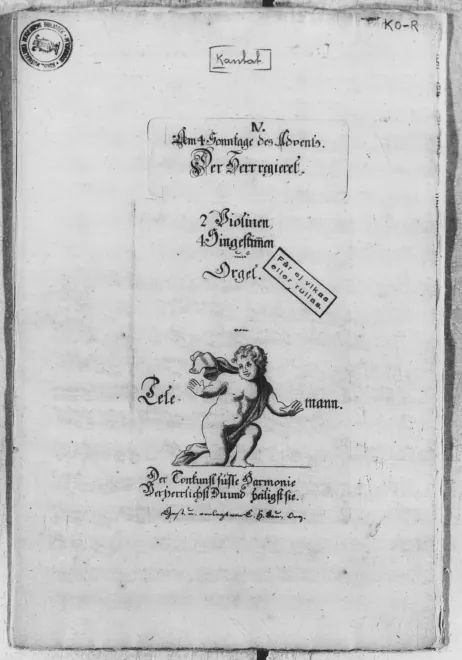 KO-R
Kantat
IV.
Am 4 Sonntage des Advents.
Der Herr regieret.
2 Violinen,
4 Singestim̅en
und
Orgel.
Får ej vikas
eller rullas.
von
Tele-
mann.
Der Tonkunst süsse Harmonie
Verherrlichst Du und heiligst sie.